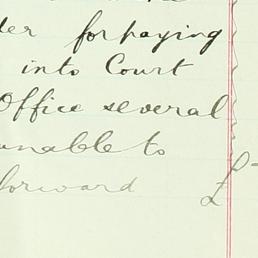 der for paying
into Court
Office several
unable to
forward
£